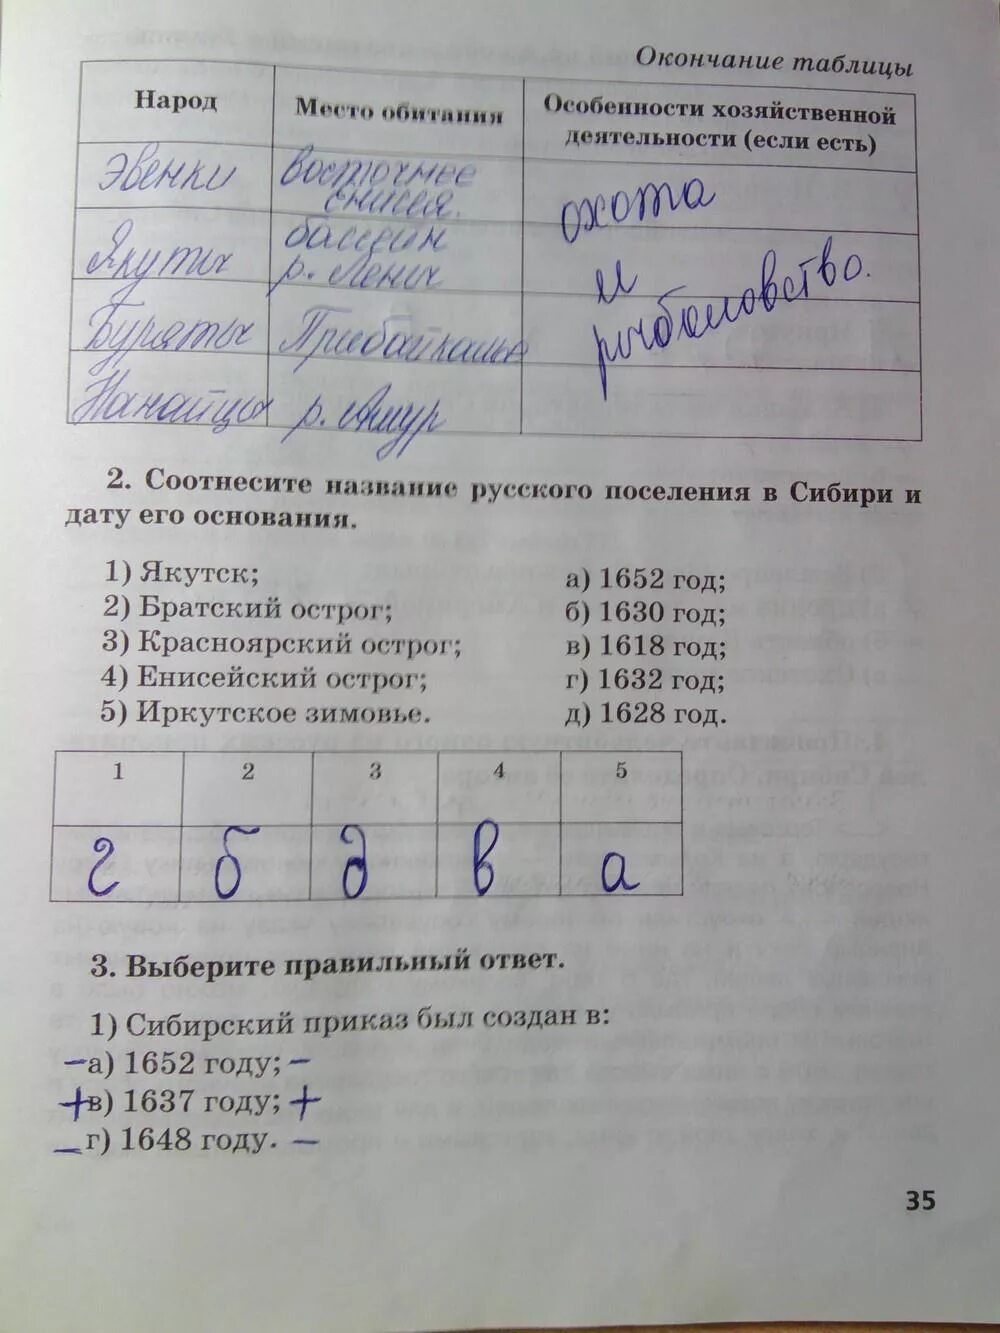 Окончание таблицы
Народ Место обитания Особенности хозяйственной деятельности (если есть)
Эвенки восточнее енисея. охота
Якуты бассейн р. Лены и
Буряты Прибайкалье рыболовство.
Нанайцы р. Амур
2. Соотнесите название русского поселения в Сибири и
дату его основания.
1) Якутск; а) 1652 год;
2) Братский острог; б) 1630 год;
3) Красноярский острог; в) 1618 год;
4) Енисейский острог; г) 1632 год;
5) Иркутское зимовье. д) 1628 год.
1 2 3 4 5
г б д в а
3. Выберите правильный ответ.
1) Сибирский приказ был создан в:
– а) 1652 году; –
+ в) 1637 году; +
– г) 1648 году. –
35